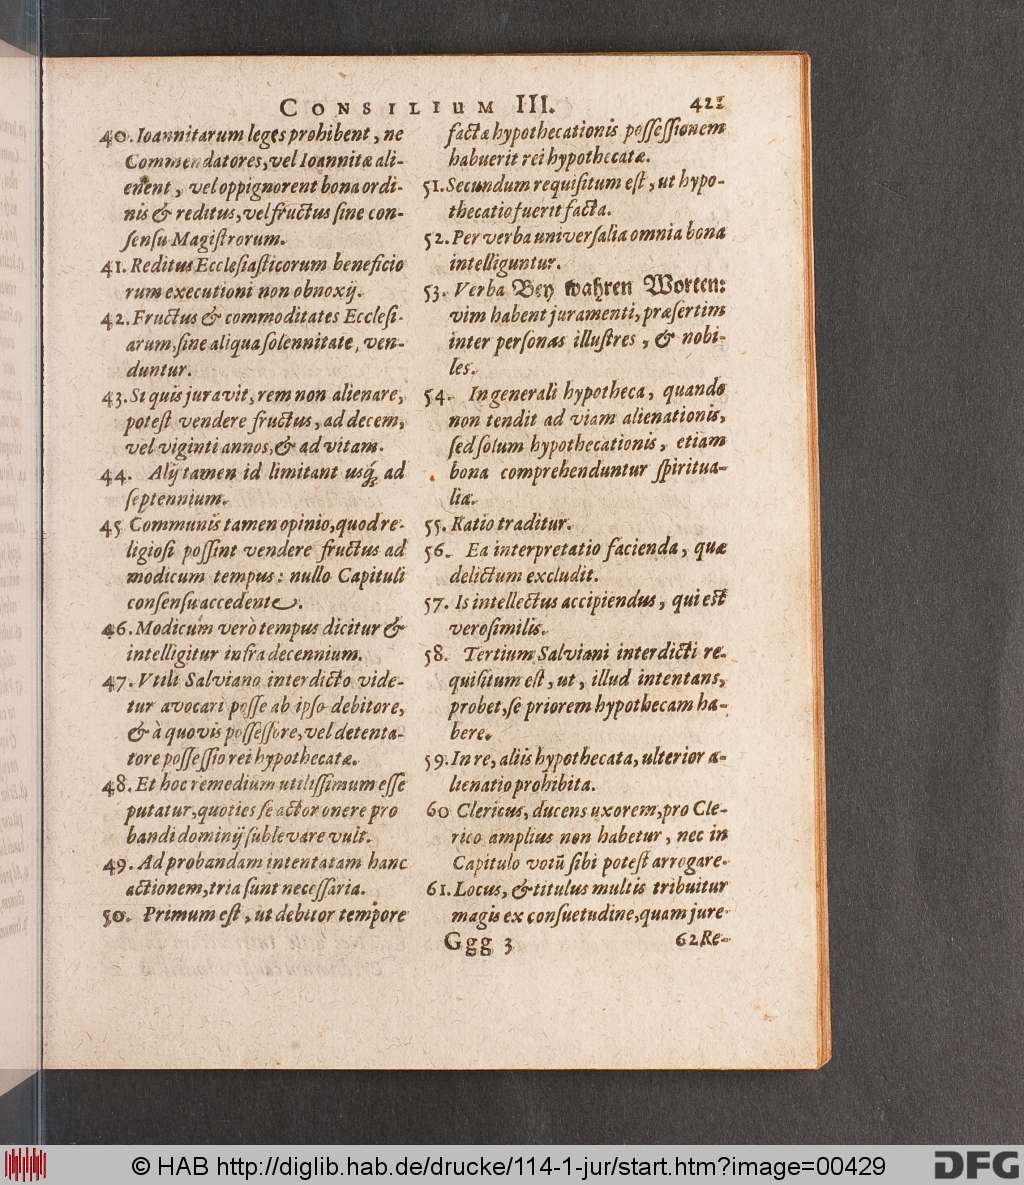 CONSILIUM III. 421
40. Ioannitarum leges prohibent, ne
Commendatores, vel Ioannitæ ali-
enent, vel oppignorent bona ordi-
nis & reditus, vel fructus ſine con-
ſenſu Magiſtrorum.
41. Reditus Eccleſiaſticorum beneficio
rum executioni non obnoxij.
42. Fructus & commoditates Eccleſi-
arum, ſine aliqua ſolennitate, ven-
duntur.
43. Si quis juravit, rem non alienare,
poteſt vendere fructus, ad decem,
vel viginti annos, & ad vitam.
44. Alij tamen id limitant usq́; ad
ſeptennium.
45 Communis tamen opinio, quod re-
ligioſi poſſint vendere fructus ad
modicum tempus: nullo Capituli
conſenſu accedente.
46. Modicum verò tempus dicitur &
intelligitur infra decennium.
47. Vtili Salviano interdicto vide-
tur avocari poſſe ab ipſo debitore,
& à quovis poſſeſſore, vel detenta-
tore poſſeſſio rei hypothecatæ.
48. Et hoc remedium utiliſſimum eſſe
putatur, quoties ſe actor onere pro
bandi dominij ſublevare vult.
49. Ad probandam intentatam hanc
actionem, tria ſunt neceſſaria.
50. Primum eſt, ut debitor tempore
factæ hypothecationis poſſeſſionem
habuerit rei hypothecatæ.
51. Secundum requiſitum eſt, ut hypo-
thecatio fuerit facta.
52. Per verba univerſalia omnia bona
intelliguntur.
53. Verba Bey wahren Worten:
vim habent juramenti, præſertim
inter perſonas illuſtres, & nobi-
les.
54. In generali hypotheca, quando
non tendit ad viam alienationis,
ſed ſolum hypothecationis, etiam
bona comprehenduntur ſpiritua-
lia.
55. Ratio traditur.
56. Ea interpretatio facienda, quæ
delictum excludit.
57. Is intellectus accipiendus, qui eſt
veroſimilis.
58. Tertium Salviani interdicti re-
quiſitum eſt, ut, illud intentans,
probet, ſe priorem hypothecam ha-
bere.
59. In re, aliis hypothecata, ulterior a-
lienatio prohibita.
60 Clericus, ducens uxorem, pro Cle-
rico amplius non habetur, nec in
Capitulo votũ ſibi poteſt arrogare.
61. Locus, & titulus multis tribuitur
magis ex conſuetudine, quam jure
Ggg 3 62 Re-
© HAB http://diglib.hab.de/drucke/114-1-jur/start.htm?image=00429
DFG